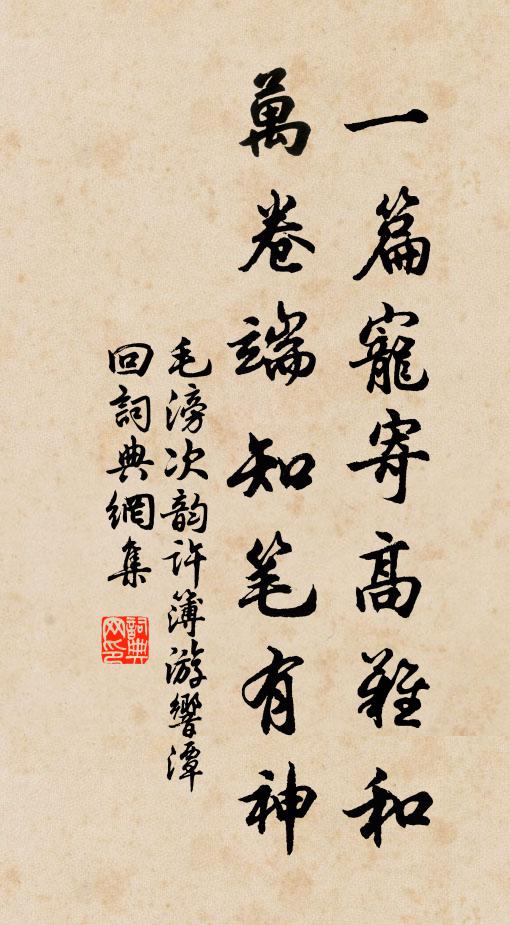 一篇寵寄高難和
萬卷端知笔有神
毛滂次韵許簿游響潭
回詞典網集
詞典
网印